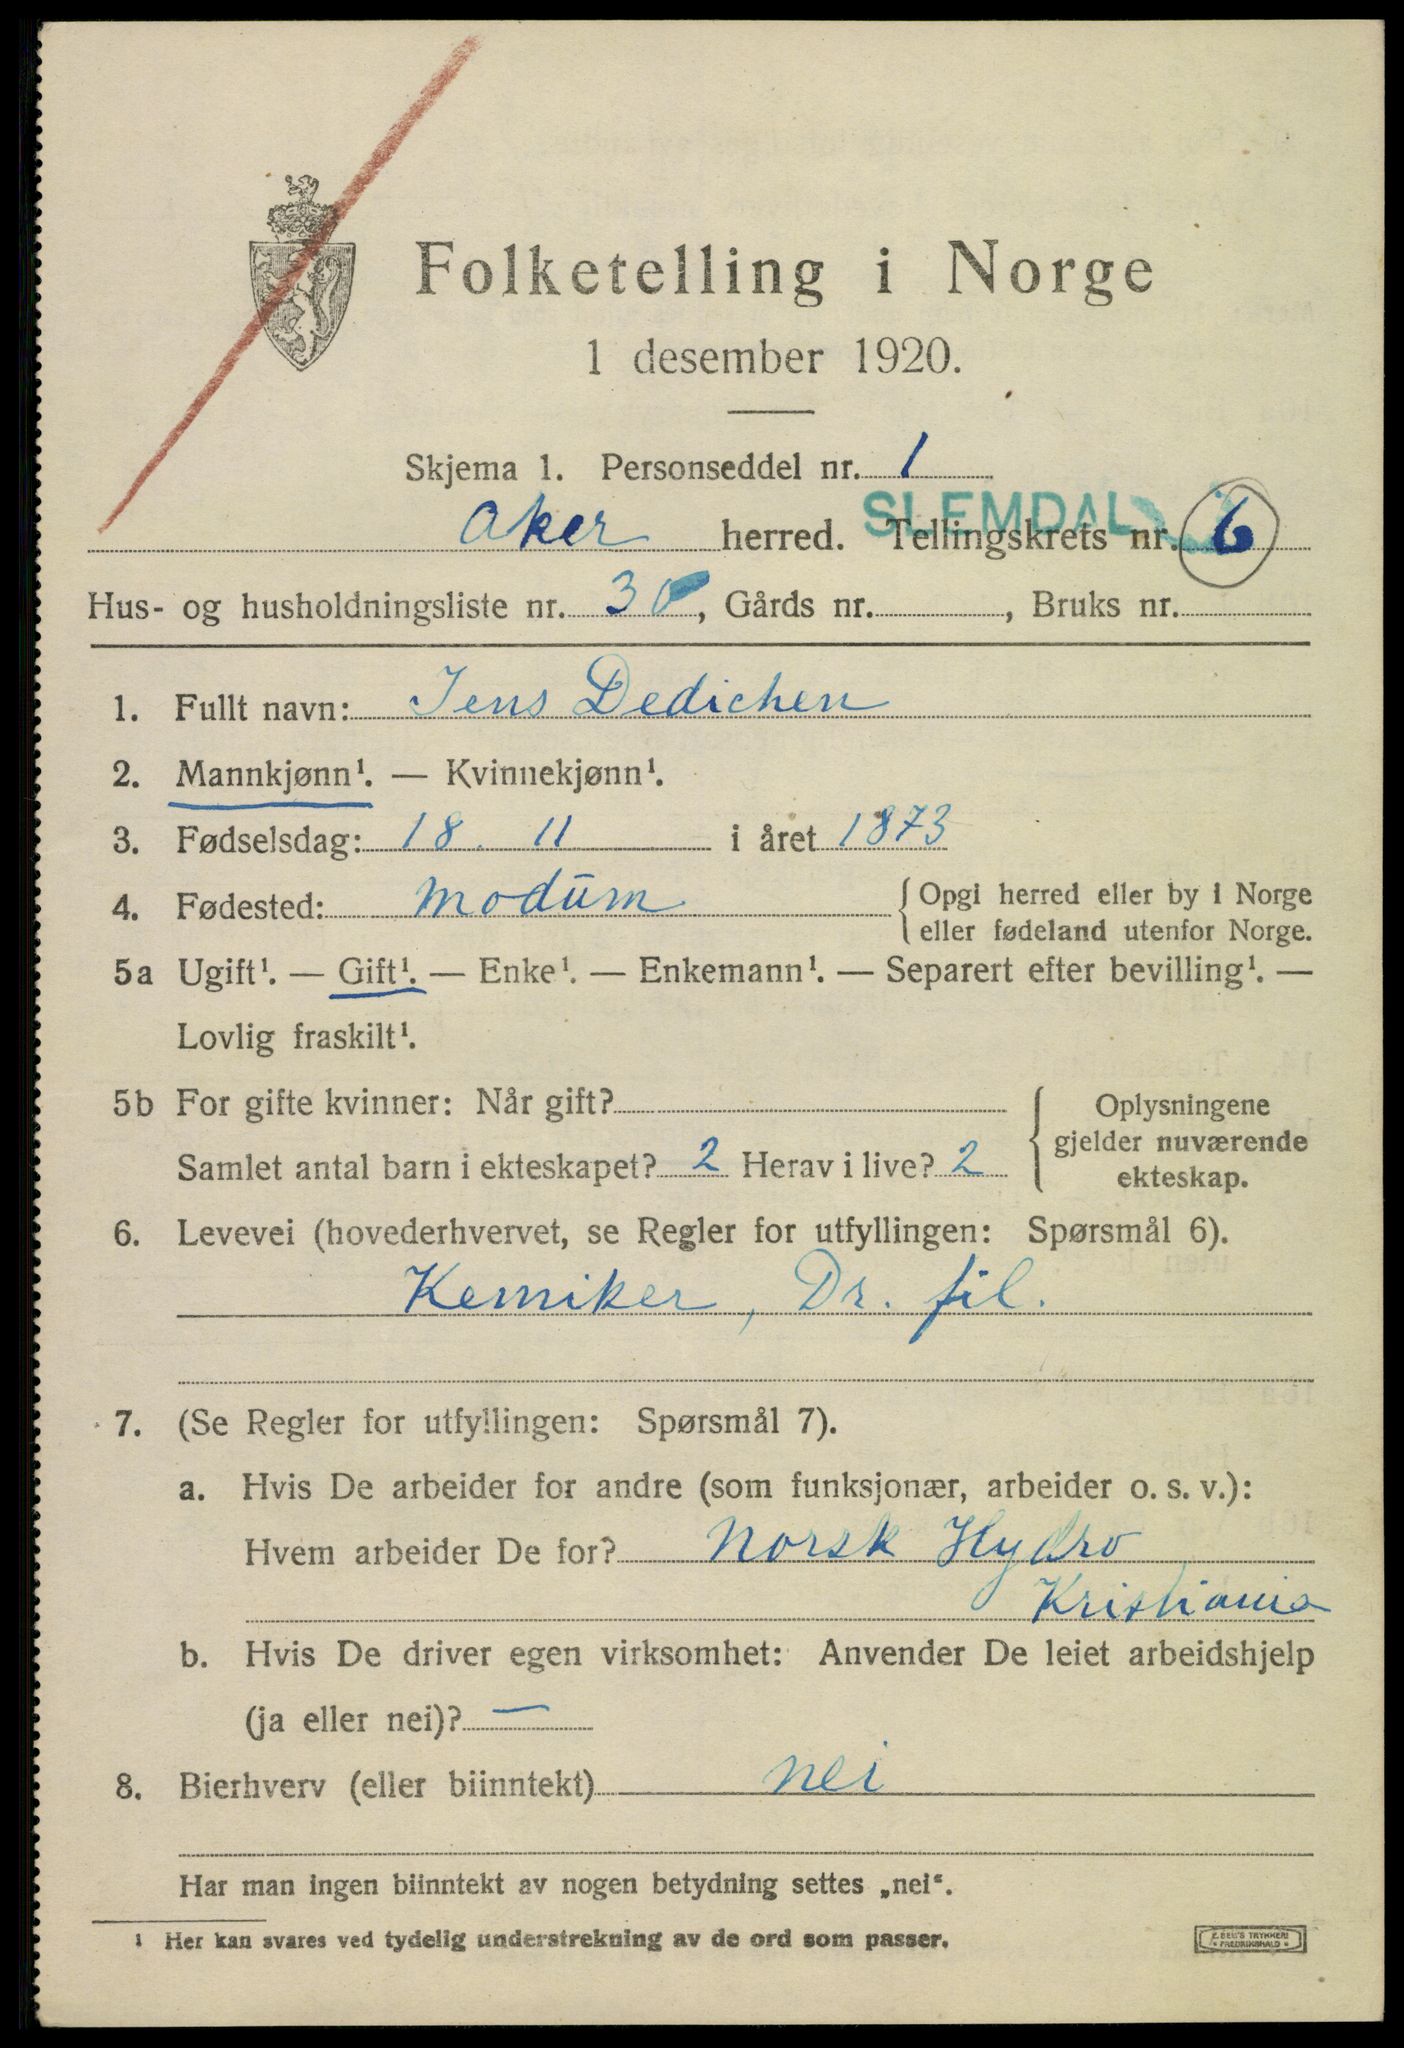 Folketelling i Norge
1 desember 1920.
Skjema 1. Personseddel nr. 1
SLEMDAL
Aker herred. Tellingskrets nr. 6
Hus- og husholdningsliste nr. 30, Gårds nr. , Bruks nr.
1. Fullt navn: Jens Dedichen
2. Mannkjønn¹. — Kvinnekjønn¹.
3. Fødselsdag: 18. 11 i året 1873
4. Fødested: Modum { Opgi herred eller by i Norge
eller fødeland utenfor Norge.
5a Ugift¹. — Gift¹. — Enke¹. — Enkemann¹. — Separert efter bevilling¹. —
Lovlig fraskilt¹.
5b For gifte kvinner: Når gift?
Samlet antal barn i ekteskapet? 2 Herav i live? 2
{ Oplysningene
gjelder nuværende
ekteskap.
6. Levevei (hovederhvervet, se Regler for utfyllingen: Spørsmål 6).
Kemiker, Dr. fil.
7. (Se Regler for utfyllingen: Spørsmål 7).
a. Hvis De arbeider for andre (som funksjonær, arbeider o. s. v.):
Hvem arbeider De for? Norsk Hydro
Kristiania
b. Hvis De driver egen virksomhet: Anvender De leiet arbeidshjelp
(ja eller nei)? —
8. Bierhverv (eller biinntekt) nei
Har man ingen biinntekt av nogen betydning settes „nei“.
¹ Her kan svares ved tydelig understrekning av de ord som passer.
E. BERG'S TRYKKERI
• FREDRIKSHALD •